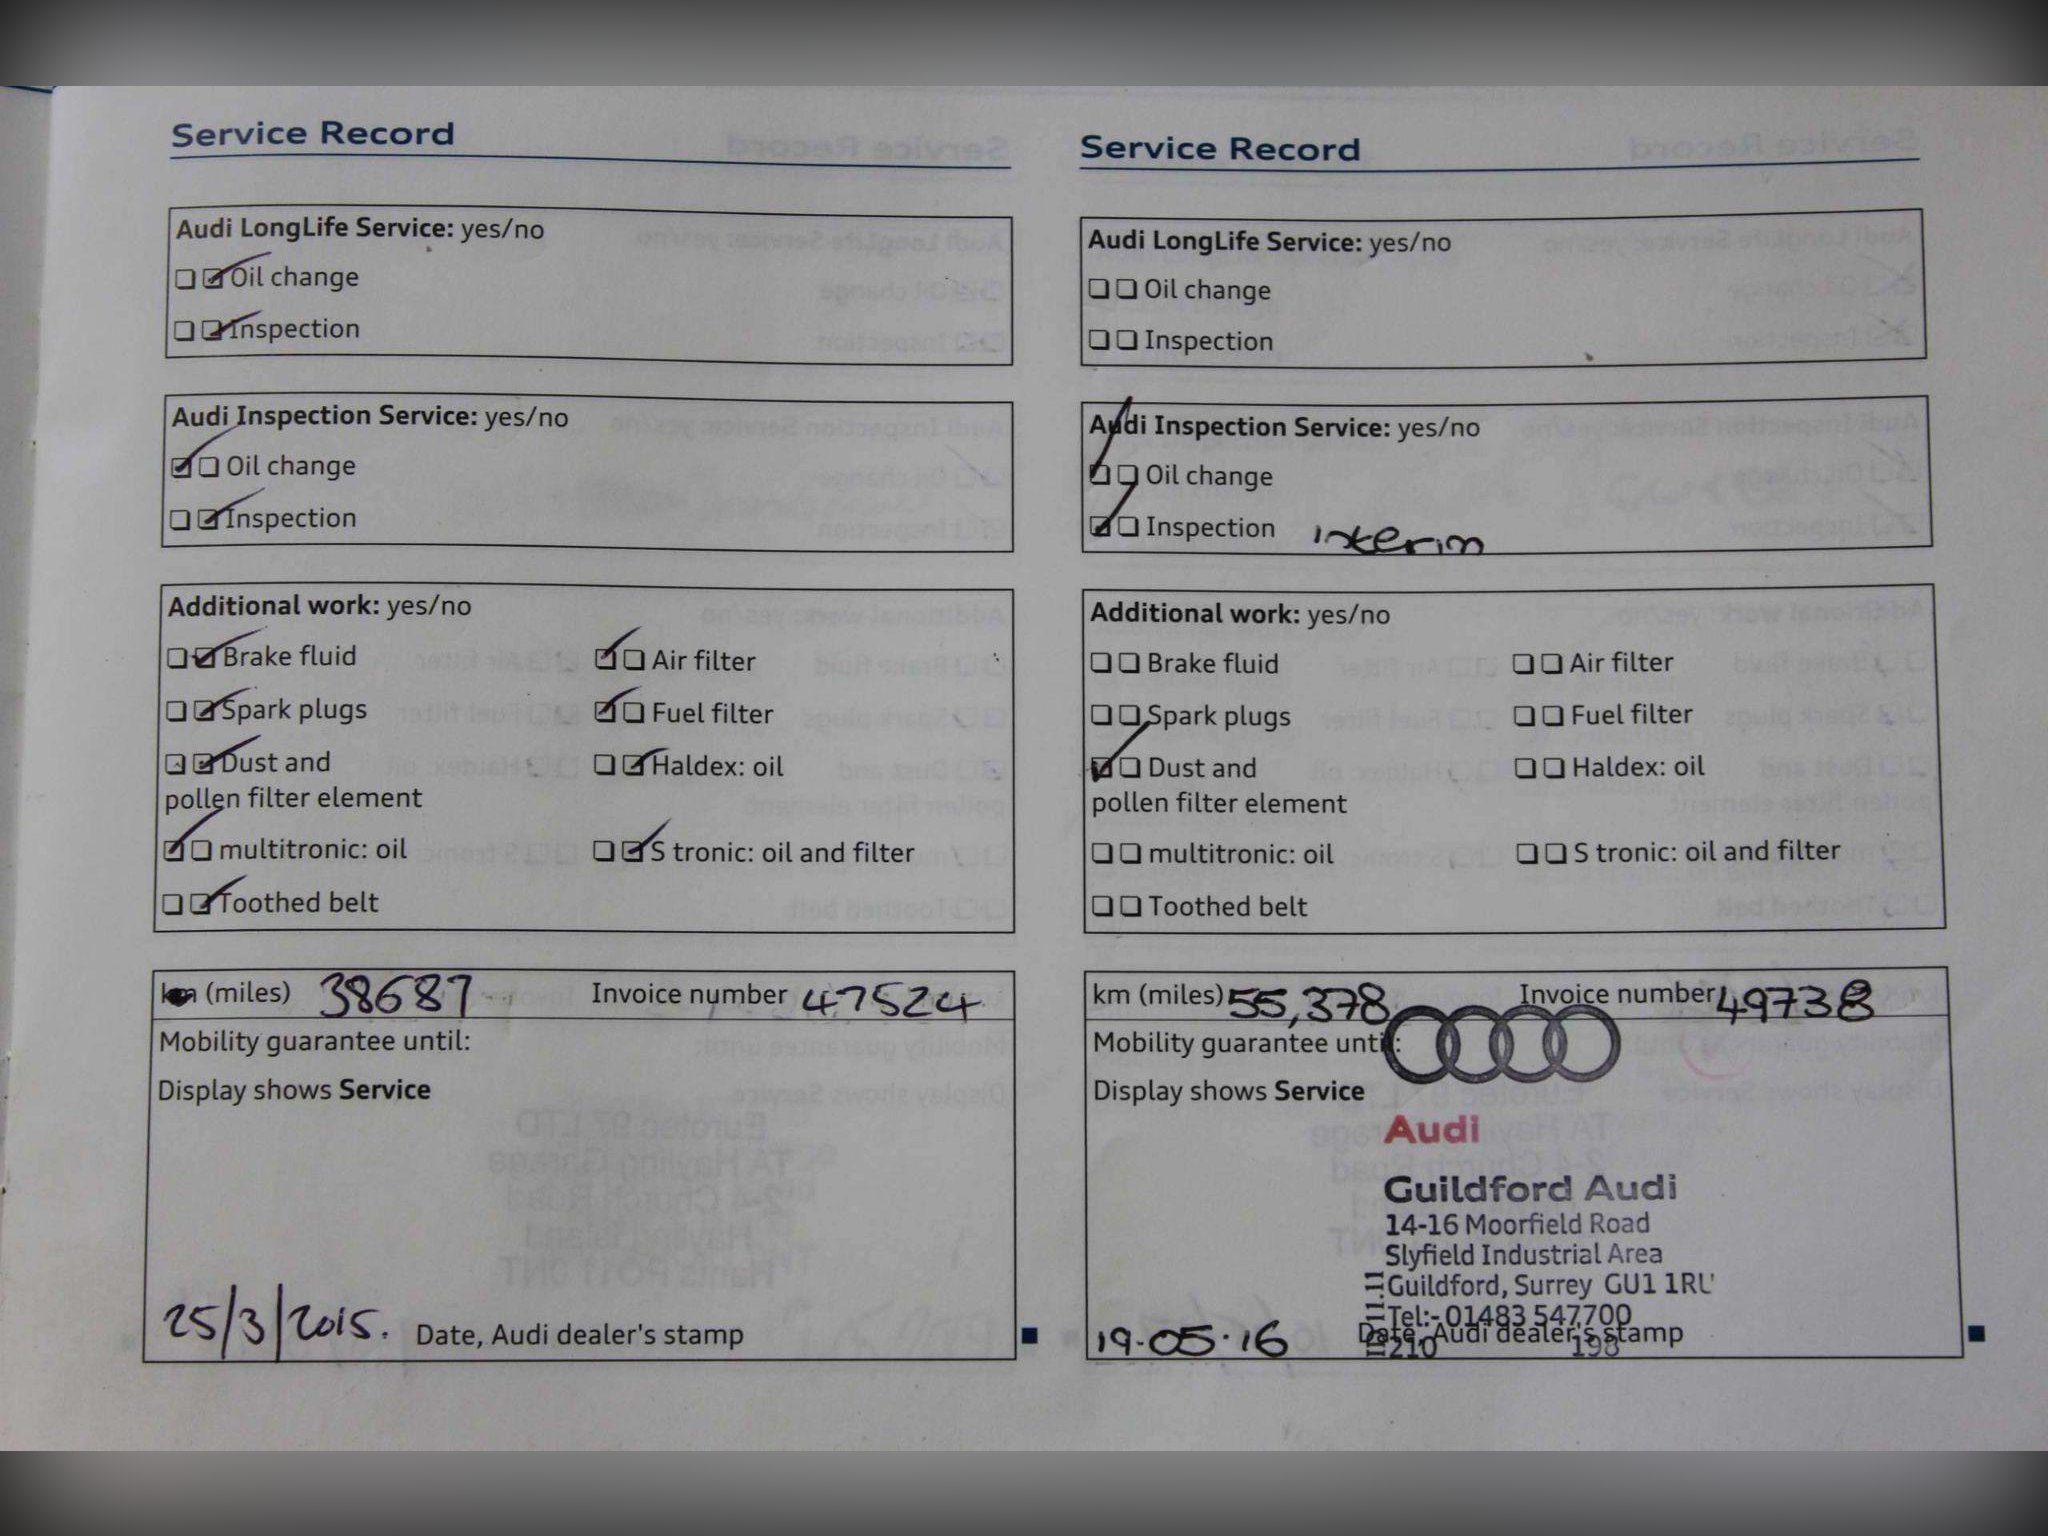 Service Record
Audi LongLife Service: yes/no
Oil change
Inspection
Audi Inspection Service: yes/no
Oil change
Inspection
Additional work: yes/no
Brake fluid
Air filter
Spark plugs
Fuel filter
Dust and
pollen filter element
Haldex: oil
multitronic: oil
S tronic: oil and filter
Toothed belt
km (miles) 38687 Invoice number 47524
Mobility guarantee until:
Display shows Service
25/3/2015. Date, Audi dealer's stamp
Service Record
Audi LongLife Service: yes/no
Oil change
Inspection
Audi Inspection Service: yes/no
Oil change
Inspection interim
Additional work: yes/no
Brake fluid
Air filter
Spark plugs
Fuel filter
Dust and
pollen filter element
Haldex: oil
multitronic: oil
S tronic: oil and filter
Toothed belt
km (miles) 55,378 Invoice number 49738
Mobility guarantee until:
Display shows Service
Audi
Guildford Audi
14-16 Moorfield Road
Slyfield Industrial Area
Guildford, Surrey GU1 1RU
Tel:- 01483 547700
19-05-16 Date, Audi dealer's stamp
210 198